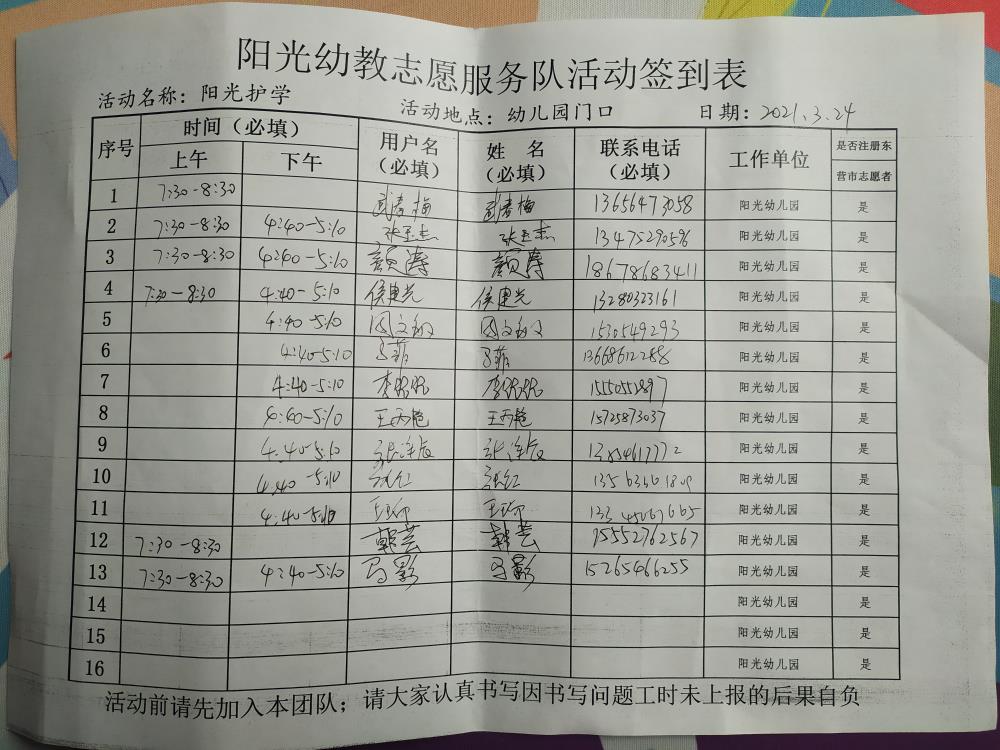 阳光幼教志愿服务队活动签到表
活动名称：阳光护学 活动地点：幼儿园门口 日期：2021.3.24
序号 时间（必填） 用户名（必填） 姓名（必填） 联系电话（必填） 工作单位 是否注册东营市志愿者
上午 下午
1 7:30-8:30 13656473058 阳光幼儿园 是
2 7:30-8:30 4:40-5:10 张玉杰 张玉杰 13475290596 阳光幼儿园 是
3 7:30-8:30 4:40-5:10 颜涛 颜涛 18678683411 阳光幼儿园 是
4 7:30-8:30 4:40-5:10 侯建光 侯建光 13280323161 阳光幼儿园 是
5 4:40-5:10 阳光幼儿园 是
6 4:40-5:10 13668612288 阳光幼儿园 是
7 4:40-5:10 15550552897 阳光幼儿园 是
8 4:40-5:10 王丙艳 王丙艳 15725873037 阳光幼儿园 是
9 4:40-5:10 阳光幼儿园 是
10 4:40-5:10 张红 张红 阳光幼儿园 是
11 4:40-5:10 阳光幼儿园 是
12 7:30-8:30 韩芸 韩芸 15552762567 阳光幼儿园 是
13 7:30-8:30 4:40-5:10 马影 马影 15265466255 阳光幼儿园 是
14 阳光幼儿园 是
15 阳光幼儿园 是
16 阳光幼儿园 是
活动前请先加入本团队；请大家认真书写因书写问题工时未上报的后果自负